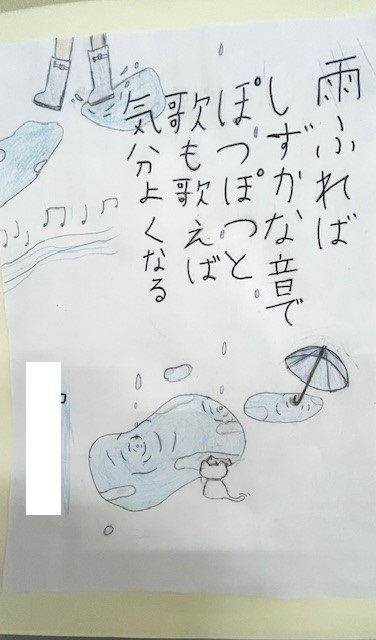 雨ふれば
しずかな音で
ぽつぽつと
歌も歌えば
気分よくなる